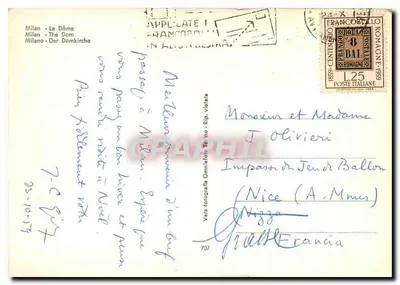 Milan - Le Dôme
Milan - The Dom
Milano - Der Domkirche
APPLICATE I
FRANCOBOLLI
IN ALTO
FRANCOBOLLO
1859 - CENTENARIO
ROMAGNE - 1959
8
BAI
L.25
POSTE ITALIANE
Meilleur souvenir d'un bref
passage à Milan. Espère que
vous passez un bon hiver et peux
vous rendre visite à Noël.
Bien fidèlement vôtre
J-C
23-10-59
Vera fotografia
707
CPAPHIL
Monsieur et Madame
J Olivieri
Impasse du Jeu de Ballon
Nice (A. Mmes)
Nizza
Grasse
Francia